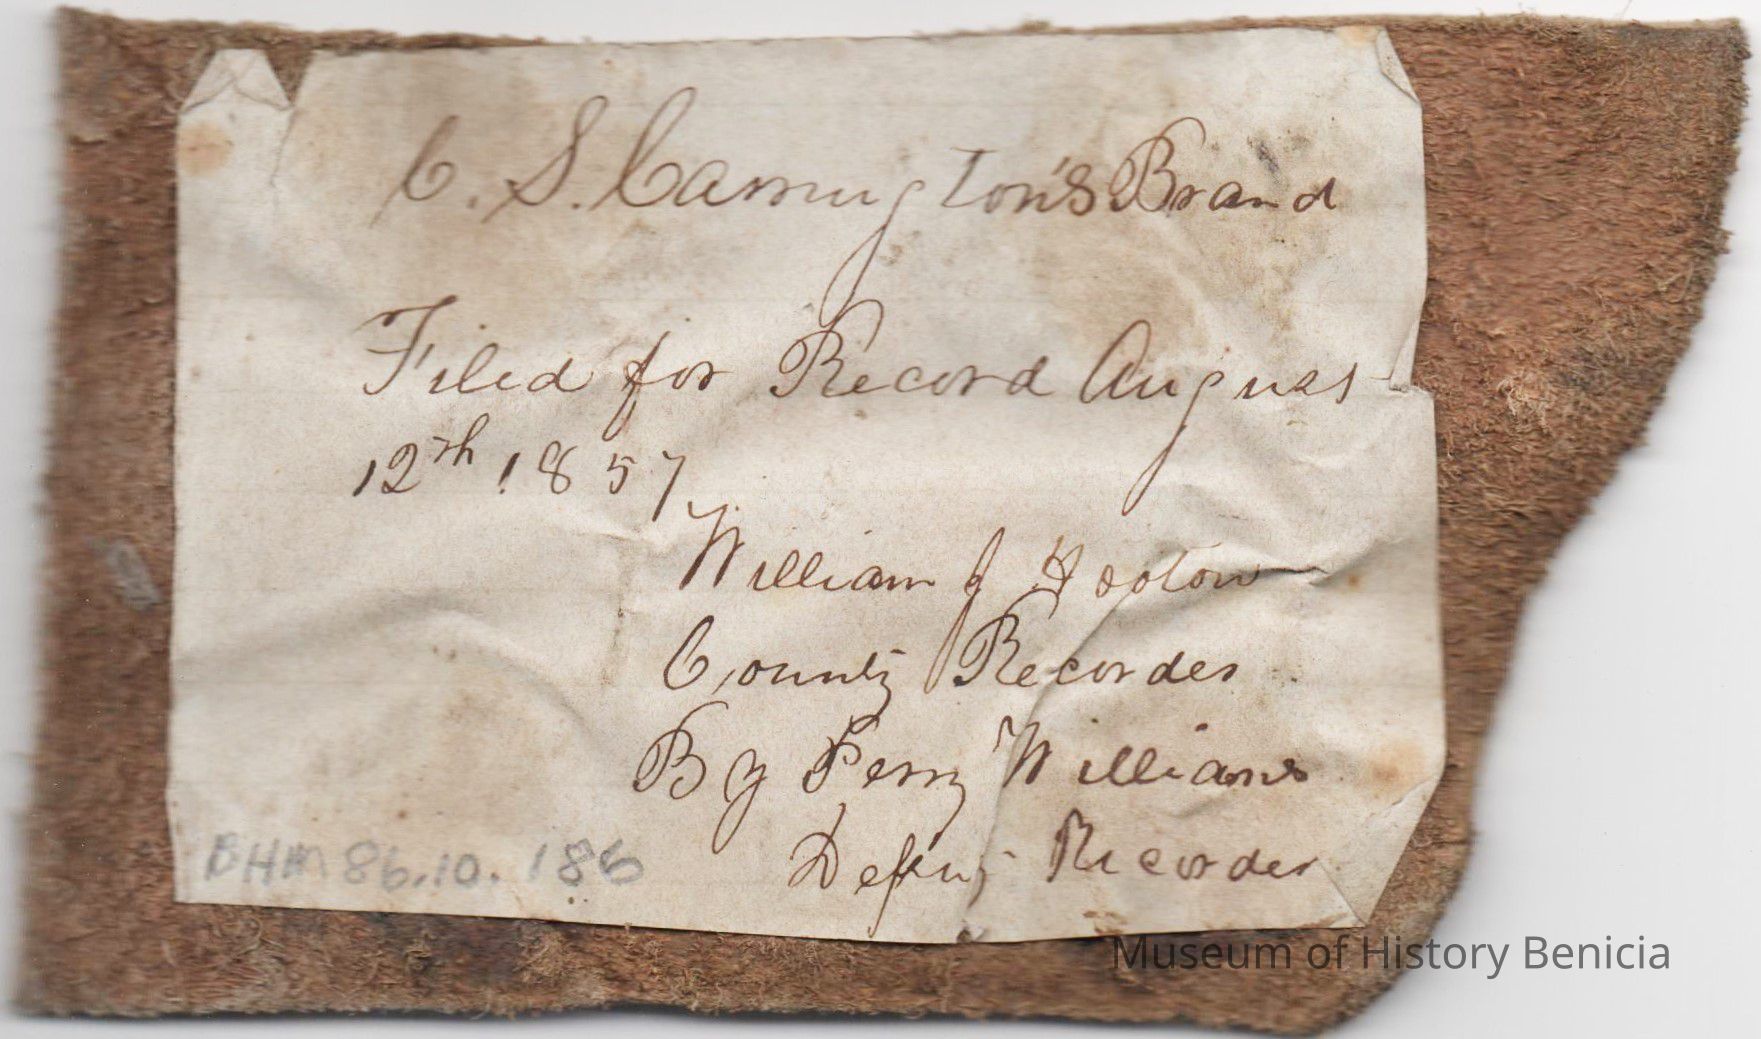 C. S. Carrington's Brand
Filed for Record August
12th 1857
William J Hooton
County Recorder
By Perry Williams
Deputy Recorder
BHM 86.10.186
Museum of History Benicia